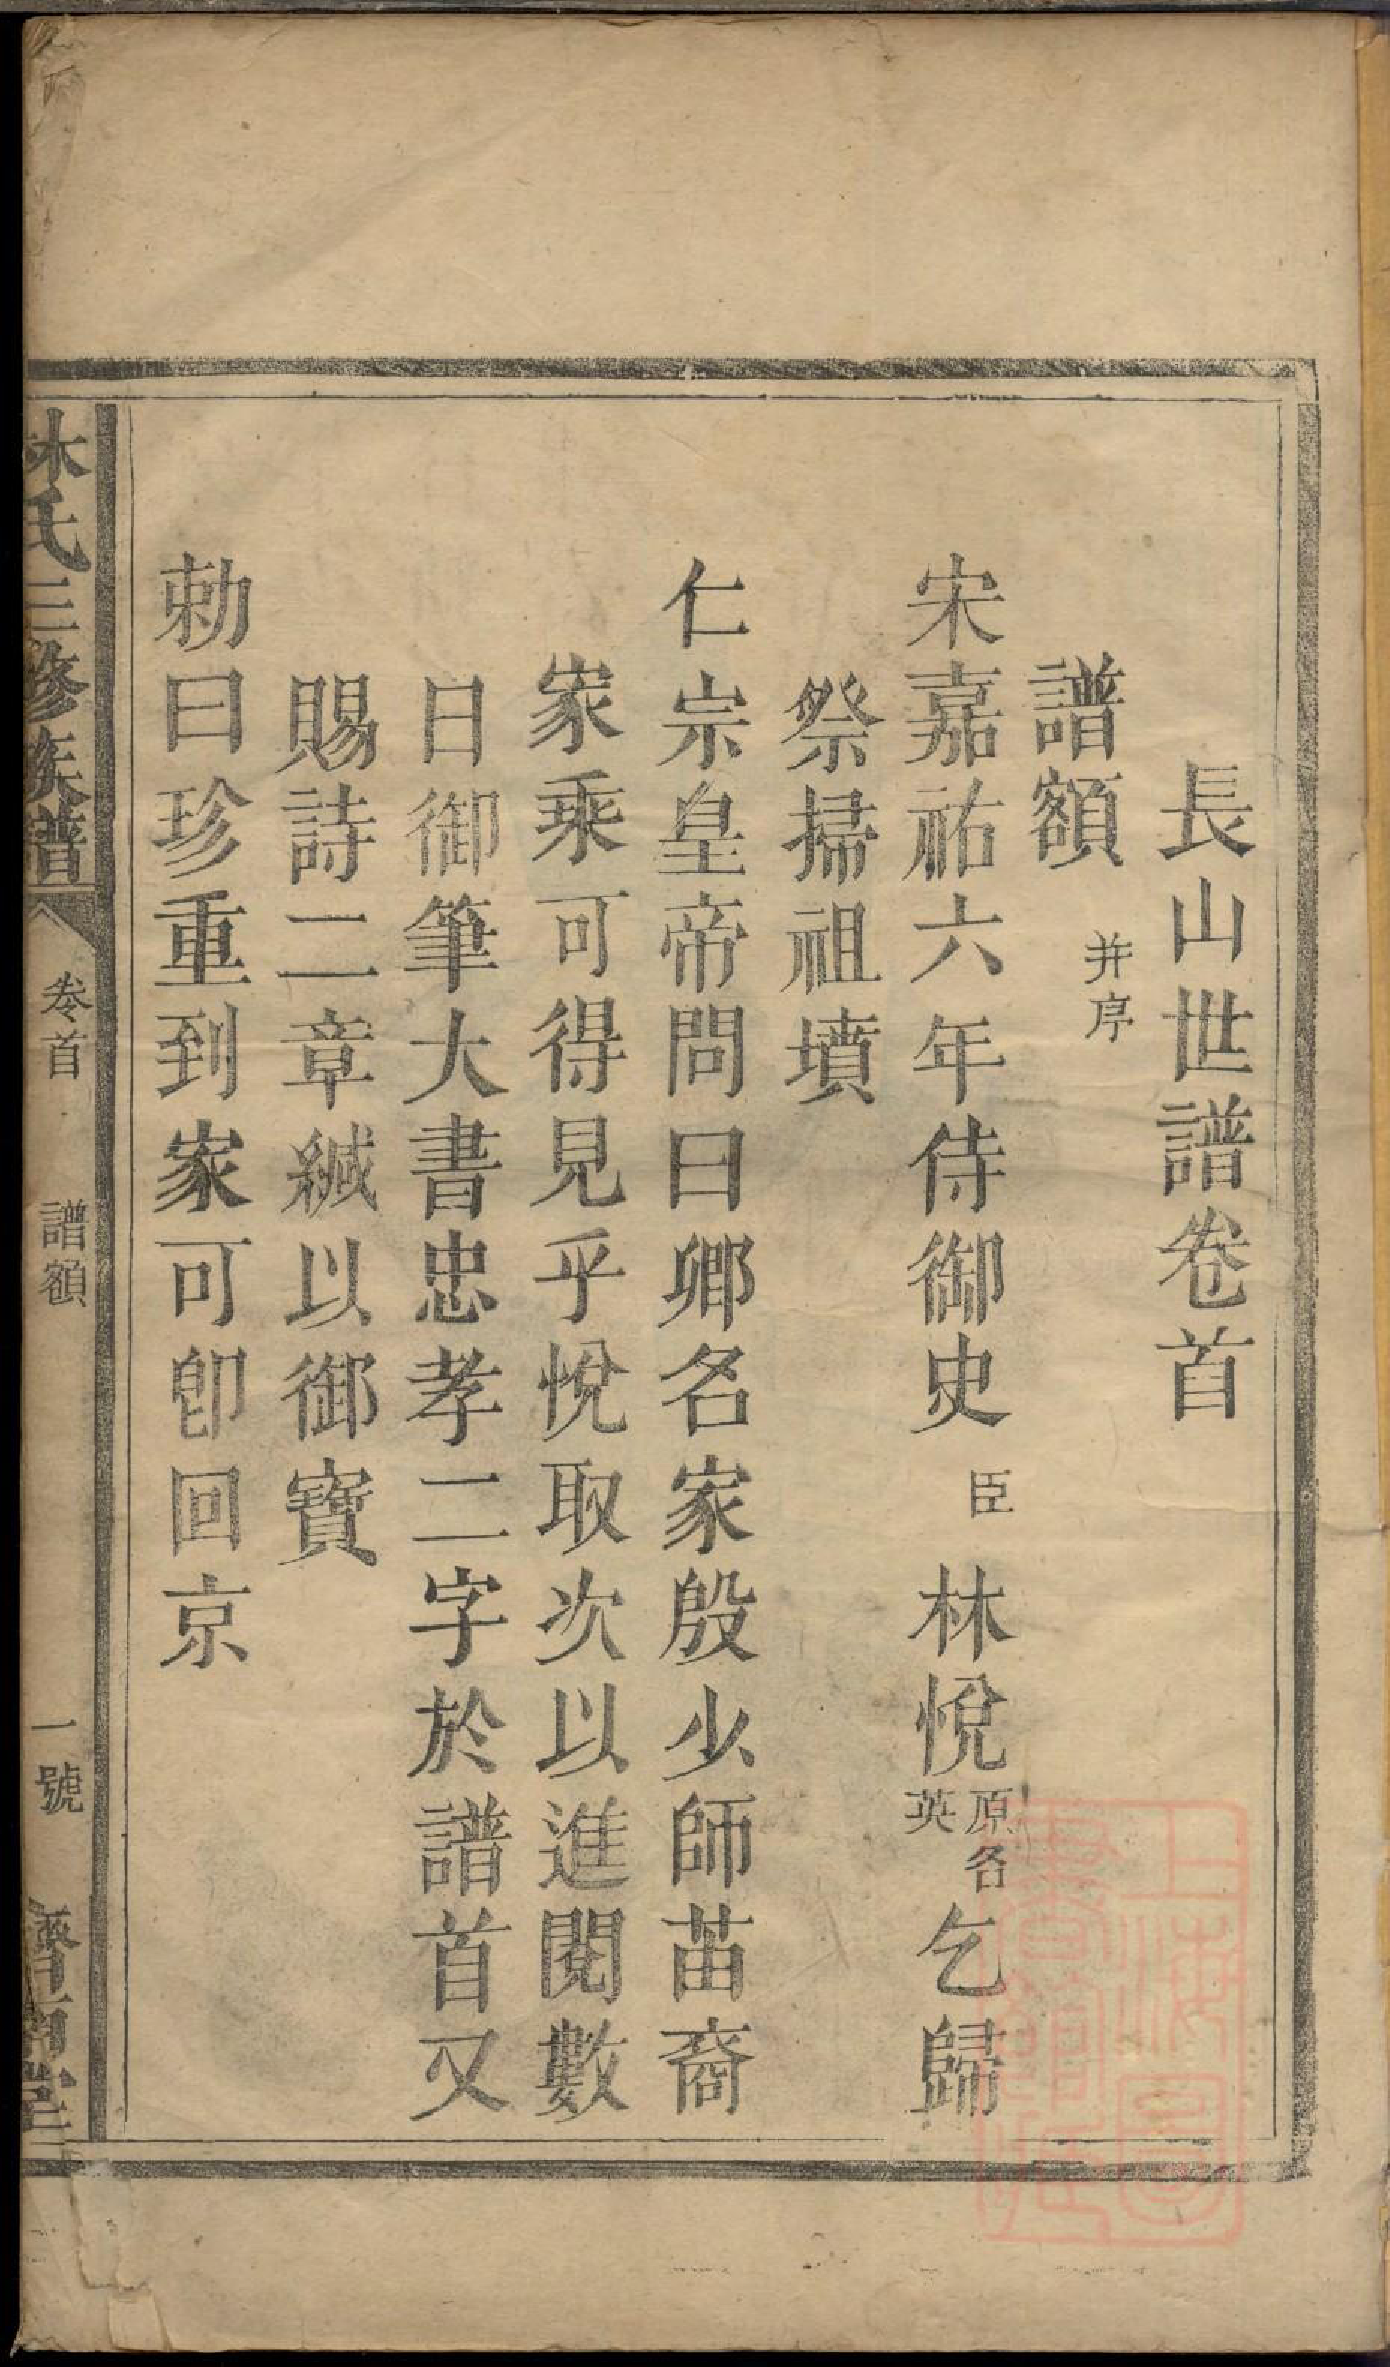 長山世譜卷首
譜額 并序
宋嘉祐六年侍御史臣林悅原名英乞歸
祭掃祖墳
仁宗皇帝問曰卿名家殷少師苗裔
家乘可得見乎悅取次以進閱數
日御筆大書忠孝二字於譜首又
賜詩二章緘以御寶
勅曰珍重到家可卽回京
林氏三修族譜 卷首 譜額 一號 濟南堂
上海圖書館藏